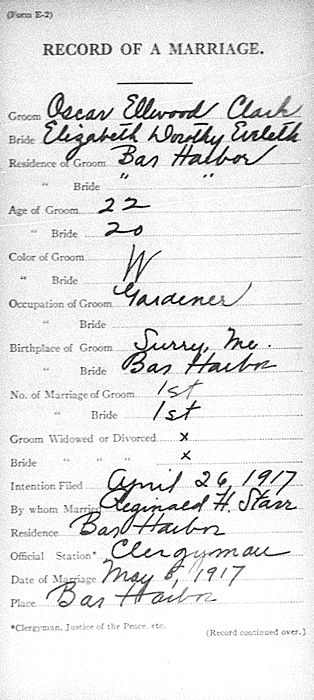 (Form E-2)
RECORD OF A MARRIAGE.
Groom Oscar Ellwood Clark
Bride Elizabeth Dorothy Eveleth
Residence of Groom Bar Harbor
" Bride " "
Age of Groom 22
" Bride 20
Color of Groom W
" Bride
Occupation of Groom Gardener
" Bride
Birthplace of Groom Surry, Me.
" Bride Bar Harbor
No. of Marriage of Groom 1st
" Bride 1st
Groom Widowed or Divorced x
Bride " " " x
Intention Filed April 26, 1917
By whom Married Reginald H. Starr
Residence Bar Harbor
Official Station* Clergyman
Date of Marriage May 8, 1917
Place Bar Harbor
*Clergyman, Justice of the Peace, etc.
(Record continued over.)